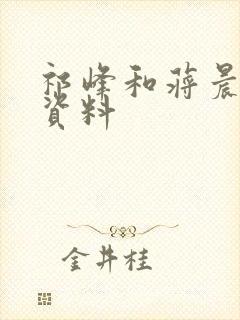 祁峰和蒋晨
资料
金井桂